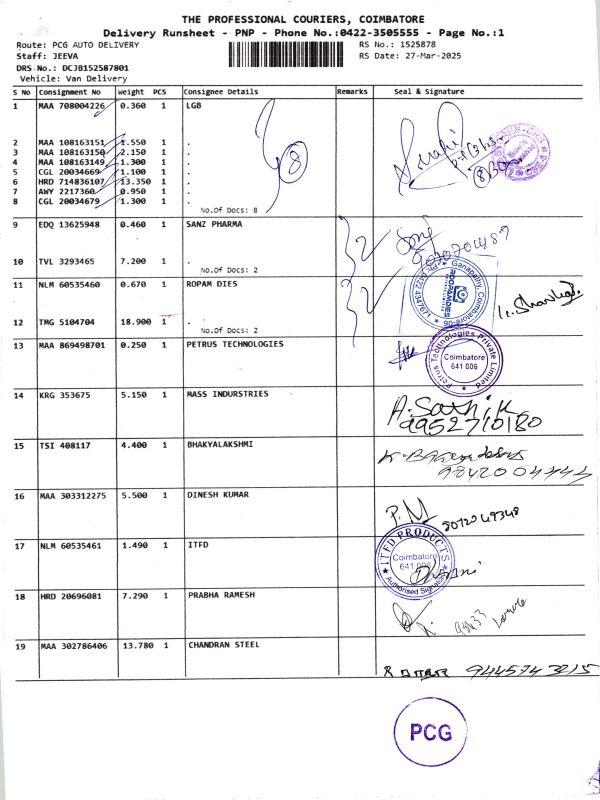 THE PROFESSIONAL COURIERS, COIMBATORE
Delivery Runsheet - PNP - Phone No.:0422-3505555 - Page No.:1
Route: PCG AUTO DELIVERY
RS No.: 1525878
Staff: JEEVA
RS Date: 27-Mar-2025
DRS No.: DCJB152587801
Vehicle: Van Delivery
S No Consignment No Weight PCS Consignee Details Remarks Seal & Signature
1 MAA 708004226 0.360 1 LGB
2 MAA 108163151 1.550 1 .
3 MAA 108163150 2.150 1 .
4 MAA 108163149 1.300 1 .
5 CGL 20034669 1.100 1 .
6 HRD 714836107 13.350 1 .
7 AWY 2217360 0.950 1 .
8 CGL 20034679 1.300 1 .
No.Of Docs: 8
8
9 EDQ 13625948 0.460 1 SANZ PHARMA
10 TVL 3293465 7.200 1 .
No.Of Docs: 2
2
11 NLM 60535460 0.670 1 ROPAM DIES
ROOPAM DIES
Ganapathy, Coimbatore-06
12 TMG 5104704 18.900 1 .
No.Of Docs: 2
2
13 MAA 869498701 0.250 1 PETRUS TECHNOLOGIES
Petrus Technologies Private Limited
Coimbatore
641 006
14 KRG 353675 5.150 1 MASS INDURSTRIES
A. Sathik
9952710180
15 TSI 408117 4.400 1 BHAKYALAKSHMI
16 MAA 303312275 5.500 1 DINESH KUMAR
P.M
17 NLM 60535461 1.490 1 ITFD
ITFD PRODUCTS
Coimbatore
641 006
Authorised Signatory
18 HRD 20696081 7.290 1 PRABHA RAMESH
19 MAA 302786406 13.780 1 CHANDRAN STEEL
9445743215
PCG